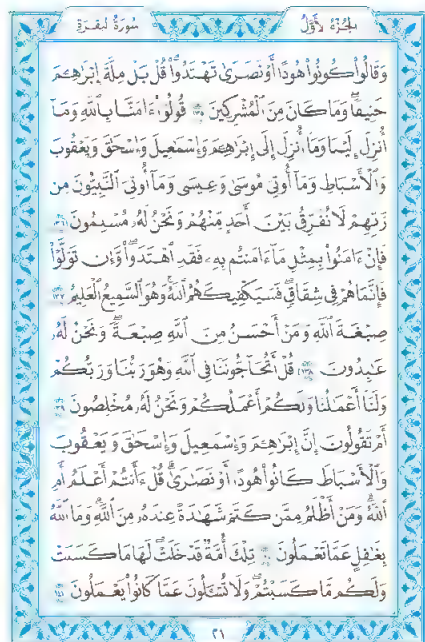 الجزء الأول سورة البقرة
وَقَالُوا۟ كُونُوا۟ هُودًا أَوْ نَصَٰرَىٰ تَهْتَدُوا۟ ۗ قُلْ بَلْ مِلَّةَ إِبْرَٰهِـۧمَ
حَنِيفًا ۖ وَمَا كَانَ مِنَ ٱلْمُشْرِكِينَ ١٣٥ قُولُوٓا۟ ءَامَنَّا بِٱللَّهِ وَمَآ
أُنزِلَ إِلَيْنَا وَمَآ أُنزِلَ إِلَىٰٓ إِبْرَٰهِـۧمَ وَإِسْمَٰعِيلَ وَإِسْحَٰقَ وَيَعْقُوبَ
وَٱلْأَسْبَاطِ وَمَآ أُوتِىَ مُوسَىٰ وَعِيسَىٰ وَمَآ أُوتِىَ ٱلنَّبِيُّونَ مِن
رَّبِّهِمْ لَا نُفَرِّقُ بَيْنَ أَحَدٍ مِّنْهُمْ وَنَحْنُ لَهُۥ مُسْلِمُونَ ١٣٦
فَإِنْ ءَامَنُوا۟ بِمِثْلِ مَآ ءَامَنتُم بِهِۦ فَقَدِ ٱهْتَدَوا۟ ۖ وَّإِن تَوَلَّوْا۟
فَإِنَّمَا هُمْ فِى شِقَاقٍ ۖ فَسَيَكْفِيكَهُمُ ٱللَّهُ ۚ وَهُوَ ٱلسَّمِيعُ ٱلْعَلِيمُ ١٣٧
صِبْغَةَ ٱللَّهِ ۖ وَمَنْ أَحْسَنُ مِنَ ٱللَّهِ صِبْغَةً ۖ وَنَحْنُ لَهُۥ
عَٰبِدُونَ ١٣٨ قُلْ أَتُحَآجُّونَنَا فِى ٱللَّهِ وَهُوَ رَبُّنَا وَرَبُّكُمْ
وَلَنَآ أَعْمَٰلُنَا وَلَكُمْ أَعْمَٰلُكُمْ وَنَحْنُ لَهُۥ مُخْلِصُونَ ١٣٩
أَمْ تَقُولُونَ إِنَّ إِبْرَٰهِـۧمَ وَإِسْمَٰعِيلَ وَإِسْحَٰقَ وَيَعْقُوبَ
وَٱلْأَسْبَاطَ كَانُوا۟ هُودًا أَوْ نَصَٰرَىٰ ۗ قُلْ ءَأَنتُمْ أَعْلَمُ أَمِ
ٱللَّهُ ۗ وَمَنْ أَظْلَمُ مِمَّن كَتَمَ شَهَٰدَةً عِندَهُۥ مِنَ ٱللَّهِ ۗ وَمَا ٱللَّهُ
بِغَٰفِلٍ عَمَّا تَعْمَلُونَ ١٤٠ تِلْكَ أُمَّةٌ قَدْ خَلَتْ ۖ لَهَا مَا كَسَبَتْ
وَلَكُم مَّا كَسَبْتُمْ ۖ وَلَا تُسْـَٔلُونَ عَمَّا كَانُوا۟ يَعْمَلُونَ ١٤١
٢١